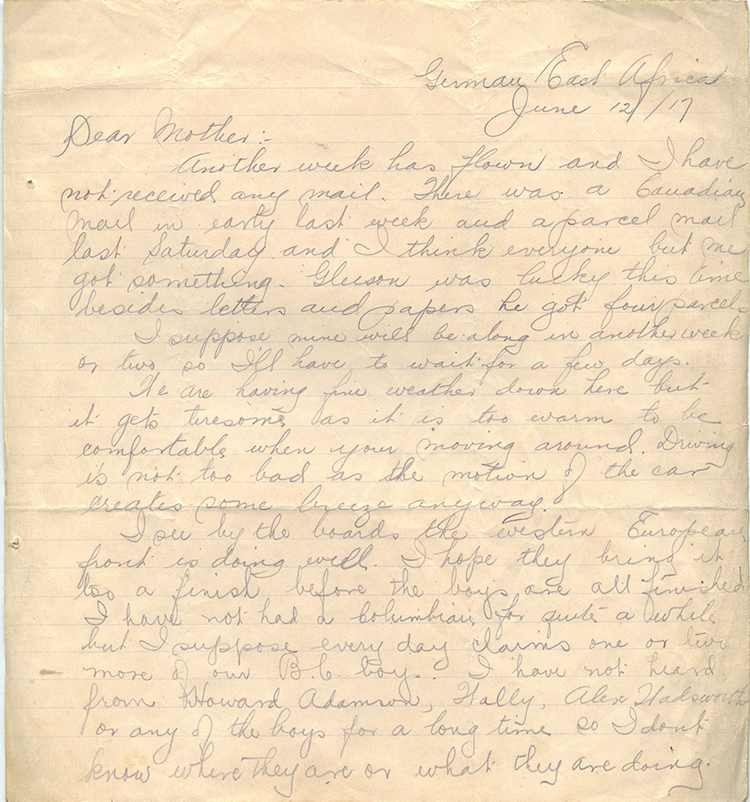 German East Africa
June 12/17
Dear Mother:-
Another week has flown and I have
not received any mail. There was a Canadian
mail in early last week and a parcel mail
last Saturday and I think everyone but me
got something. Gleeson was lucky this time
besides letters and papers he got four parcels
I suppose mine will be along in another week
or two so I'll have to wait for a few days.
We are having fine weather down here but
it gets tiresome as it is too warm to be
comfortable when your moving around. Driving
is not too bad as the motion of the car
creates some breeze anyway.
I see by the boards the western European
front is doing well. I hope they bring it
too a finish before the boys are all finished
I have not had a Columbian for quite a while
but I suppose every day claims one or two
more of our B.C. boys. I have not heard
from Howard Adamson, Wally, Alex Wadsworth
or any of the boys for a long time so I dont
know where they are or what they are doing.